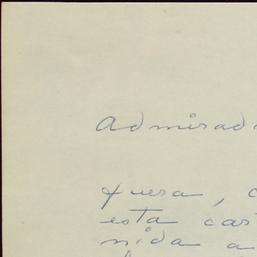 Admirad
fuera, c
esta car
nida a